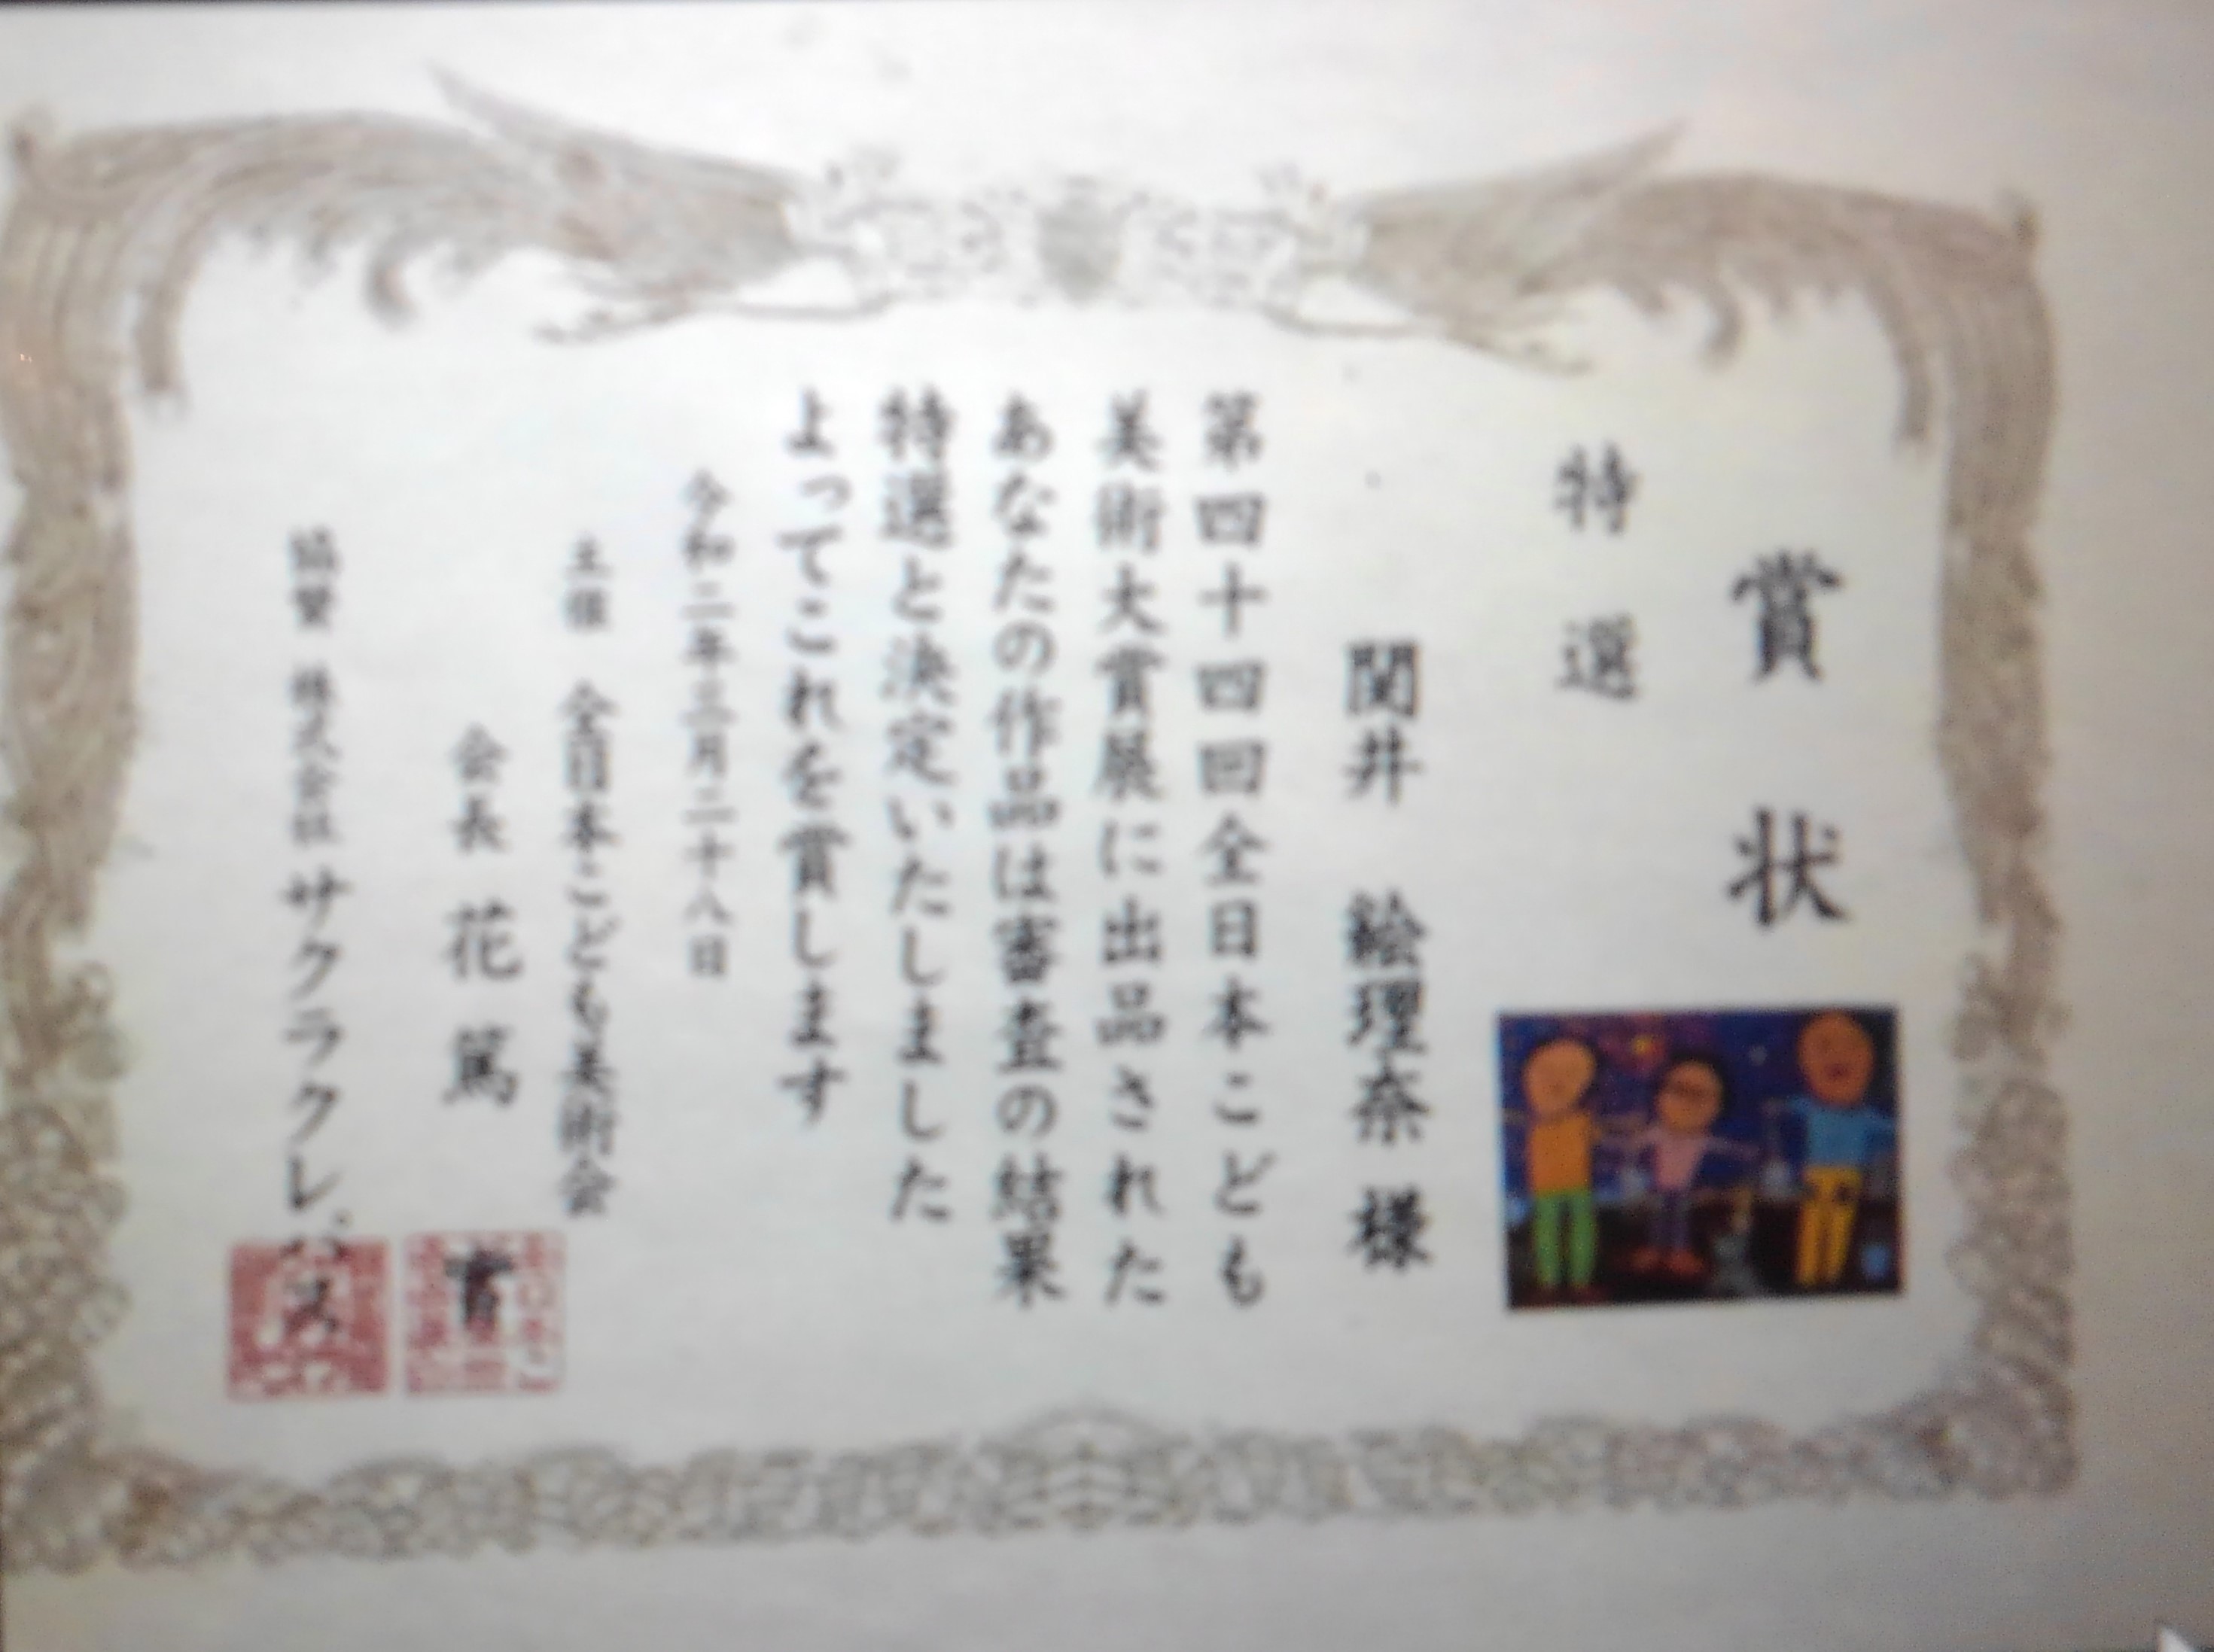 賞状
特選
関井 絵理奈 様
第四十四回全日本こども
美術大賞展に出品された
あなたの作品は審査の結果
特選と決定いたしました
よってこれを賞します
令和二年三月二十八日
主催 全日本こども美術会
会長 花篤
協賛 株式会社サクラクレパス